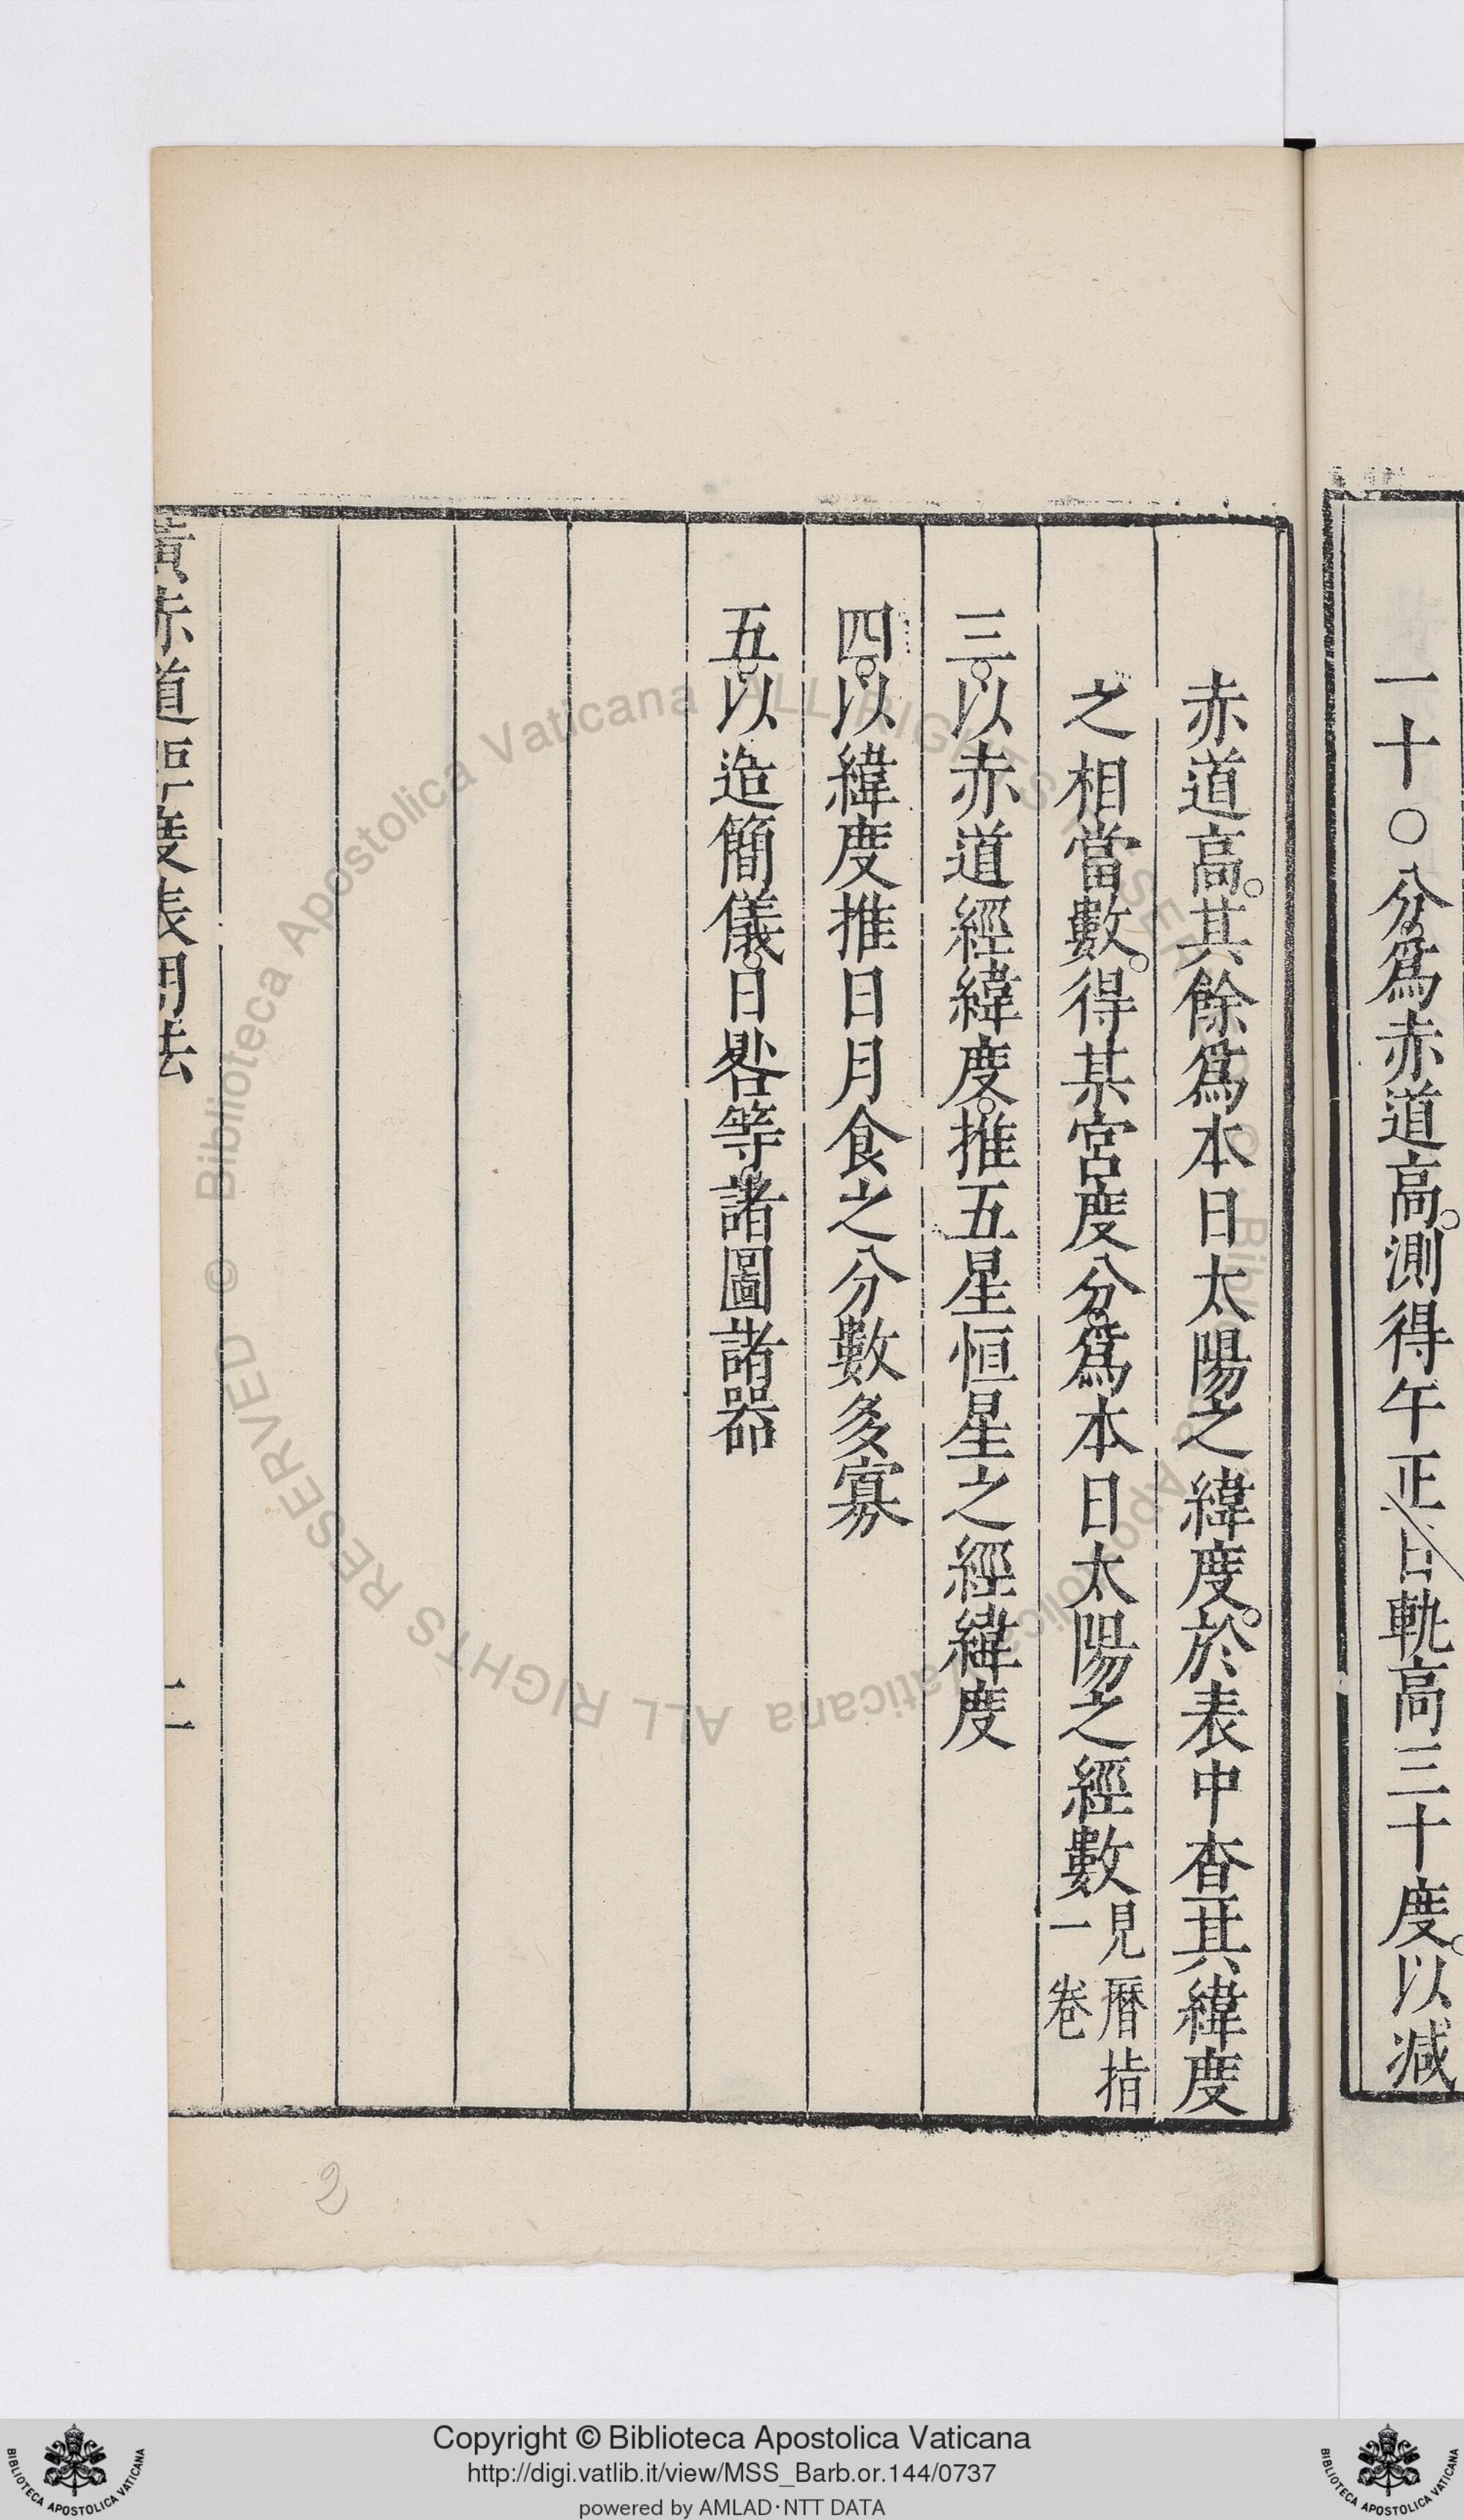 一十〇分。爲赤道高。測得午正日軌高三十度。以減
赤道高。其餘爲本日太陽之緯度。於表中查其緯度
之相當數。得某宮度分。爲本日太陽之經數見曆指一卷
三。以赤道經緯度。推五星恒星之經緯度
四。以緯度推日月食之分數多寡
五。以造簡儀。日晷等。諸圖諸器
黃赤道距度表用法
二
2
Copyright © Biblioteca Apostolica Vaticana
http://digi.vatlib.it/view/MSS_Barb.or.144/0737
powered by AMLAD·NTT DATA
BIBLIOTECA APOSTOLICA VATICANA
BIBLIOTECA APOSTOLICA VATICANA
© Biblioteca Apostolica Vaticana ALL RIGHTS RESERVED
© Biblioteca Apostolica Vaticana ALL RIGHTS RESERVED